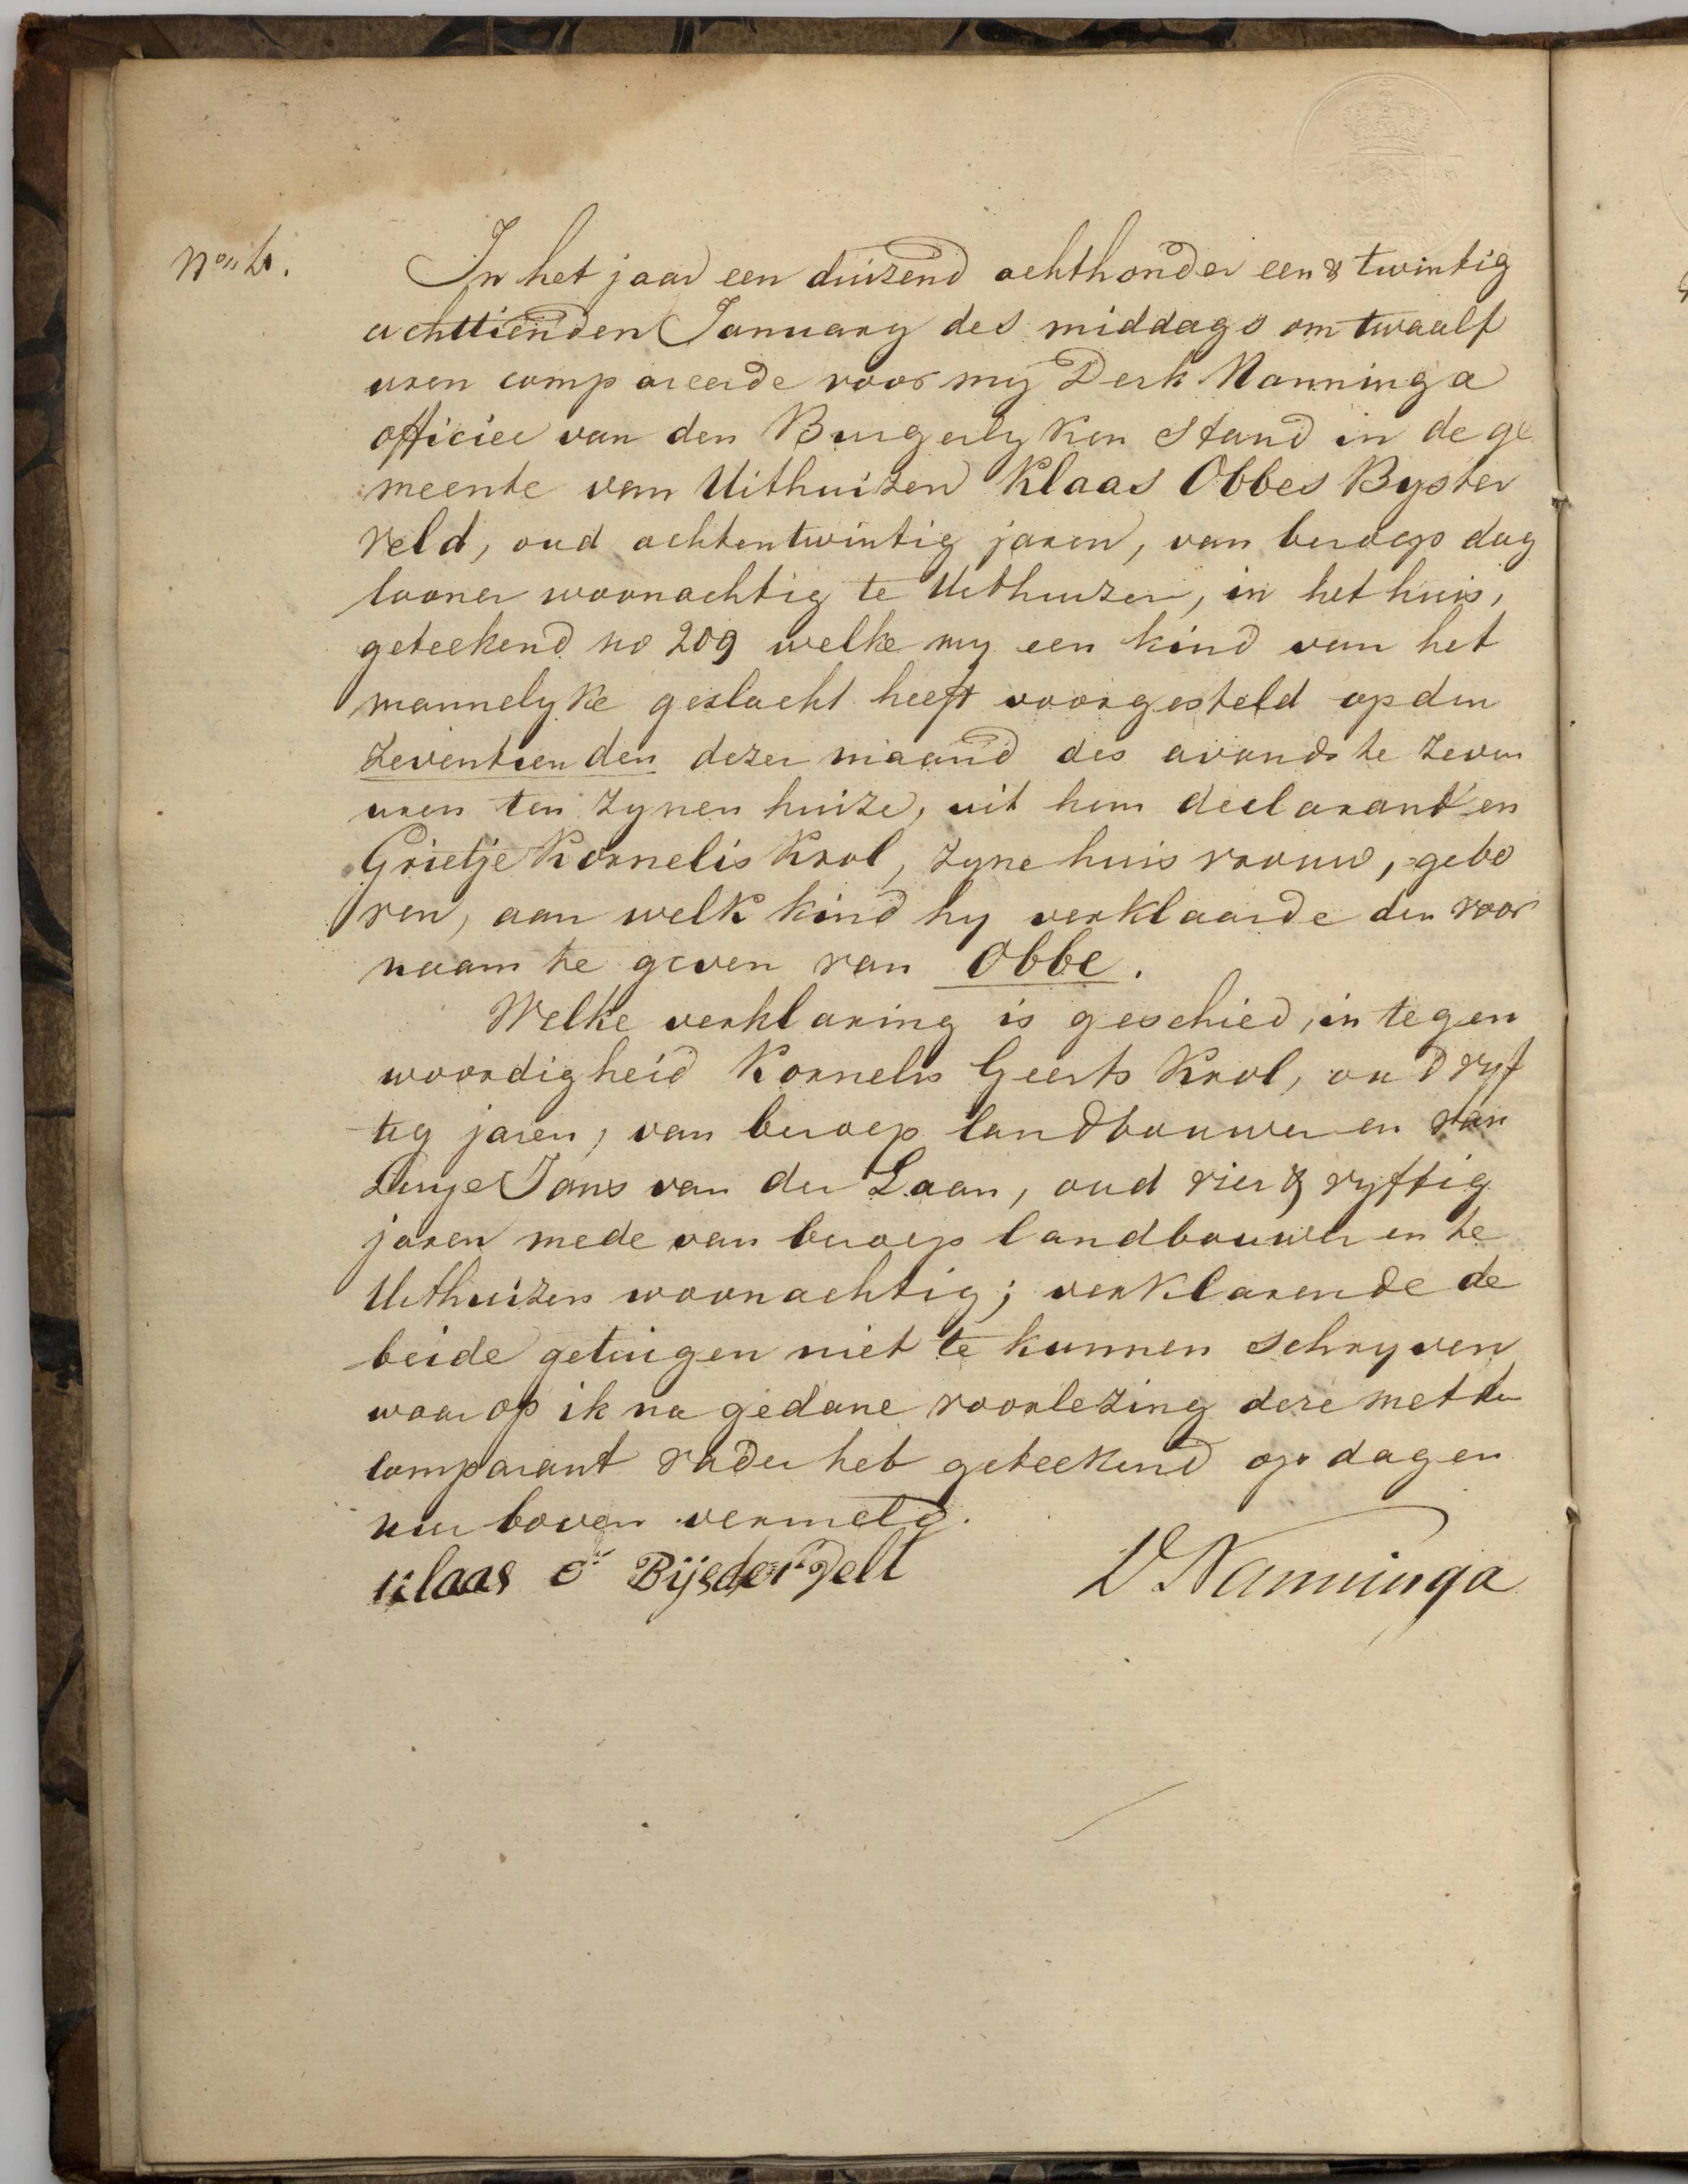 In het jaar een duizend achthonder een & twintig
achttienden January des middags om twaalf
uren compareerde voor my Derk Nanninga
officier van den Burgerlyken Stand in de ge
meente van Uithuizen Klaas Obbes Byster
veld, oud achtentwintig jaren, van beroep dag
looner woonachtig te Uithuizen, in het huis,
geteekend no 209 welke my een kind van het
mannelyke geslacht heeft voorgesteld op den
zeventienden dezer maand des avonds te zeven
uren ten zynen huize, uit hem declarant en
Grietje Kornelis Krol, zyne huisvrouw, gebo
ren, aan welk kind hy verklaarde den voor
naam te geven van Obbe.
Welke verklaring is geschied, in tegen
woordigheid Kornelis Geerts Krol, oud vyf
tig jaren, van beroep landbouwer en van
Jans van der Laan, oud vier & vyftig
jaren mede van beroep landbouwer en te
Uithuizen woonachtig; verklarende de
beide getuigen niet te kunnen schryven
waarop ik na gedane voorlezing deze met den
comparant vader heb geteekend op dag en
uur boven vermeld.
Klaas O Bijsderveld D. Nanninga